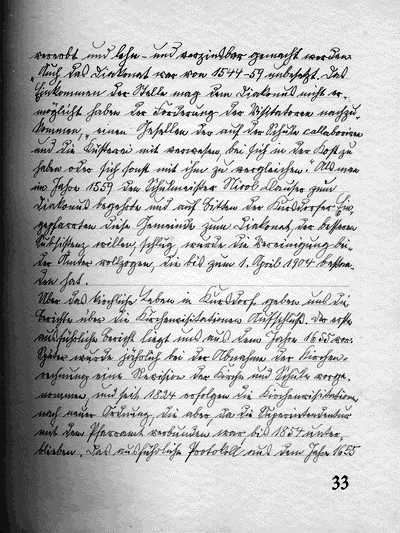 vererbt und lehn- und verzinsbar gemacht werden.
Auch das Diakonat war von 1544-59 unbesetzt. Das
Einkommen der Stelle mag dem Diakonus nicht er-
möglicht haben der Forderung der Visitatoren nachzu-
kommen, „einen Gesellen der auf der Schule collaborire
und die Küsterei mit verwesen, bei sich in der Kost zu
haben oder sich sonst mit ihm zu vergleichen." Als man
im Jahre 1559 den Schulmeister Nicol Clauser zum
Diakonus begehrte und auf Bitten der Kursdorfer Ein-
gepfarrten diese Gemeinde zum Diakonat, der besseren
Subsistenz willen, schlug, wurde die Vereinigung bei-
der Ämter vollzogen, die bis zum 1. April 1904 bestan-
den hat.
Über das kirchliche Leben in Kursdorf geben uns die
Berichte über die Kirchenvisitationen Aufschluß. Der erste
ausführliche Bericht liegt uns aus dem Jahre 1655 vor.
Später wurde jährlich bei der Abnahme der Kirchen-
rechnung eine Revision der Kirche und Schule vorge-
nommen, und seit 1824 erfolgen die Kirchenvisitationen
nach neuer Ordnung, die aber, da die Superintendentur
mit dem Pfarramt verbunden war, bis 1854 unter-
blieben. Das ausführliche Protokoll aus dem Jahre 1655
33